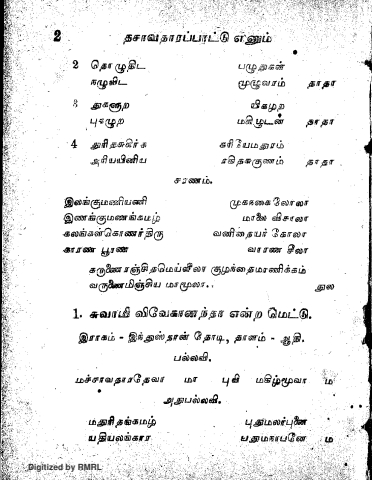 2 தசாவதாரப்பாட்டு எனும்
2 தொழுதிட பழுதுகள்
சுழுகிட மூழுவாம் தாதா
3 துகளுற மிகமுற
புகழுற மகிழுடன் தாதா
4 துரிதசுகிர்க கரியேமதுரம்
அரியயினிய சகிதசுகுணம் தாதா
சரணம்.
இலங்குமணியணி முககைலோலா
இணங்குமணங்கமழ் மாலை விசாலா
கலங்கள்கொணர்திரு வனிதையர் கோலா
காரண பூரண வாரண சீலா
கருணைரஞ்சிதமெய்லீலா குழந்தைமாணிக்கம்
வருணைமிஞ்சிய மாமூலா.. துல
1. சுவாமி விவேகானந்தா என்ற மெட்டு.
இராகம் - இந்துஸ்தான் தோடி, தாளம் - ஆதி.
பல்லவி.
மச்சாவதாரதேவா மா புவி மகிழ்மூவா ம
அநுபல்லவி.
மதுரிதங்கமழ் புதுமலர்புனை
யதியலங்கார பதுமநாபனே ம
Digitized by RMRL